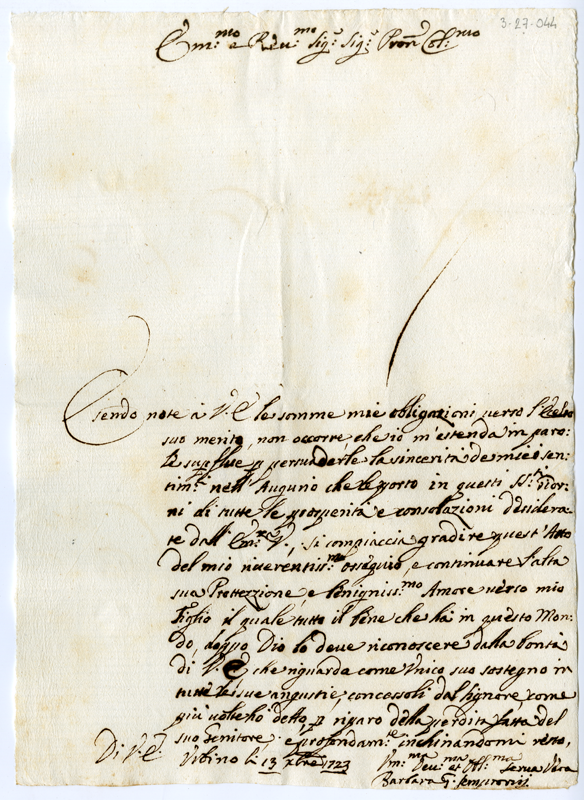 3-27-044
Em:mo e Reu:mo Sig:r Sig:r Pron Col:mo
Essendo note à V: E le somme mie obligazioni verso l'Eccelso
suo merito, non occorre, che io m'estenda in paro:
le supflue p persuaderle la sincerità de miei sen:
tim:ti nell'Augurio che le porto in questi SS:mi Gior:
ni di tutte le prosperità e consolazioni desidera:
te dall' Em:za V., si compiaccia gradire quest'Atto
del mio riuerentiss:mo ossequio, e continuare l'alta
sua Protezzione, e benigniss:mo Amore uerso mio
Figlio il quale tutto il bene che hà in questo Mon:
do, doppo Dio lo deue riconoscere dalla bontà
di V: E, che riguarda come Vnico suo sostegno in
tutte le sue angustie, concessoli dal Signore, come
più uolte hò detto, p riparo della perdita fatta del
suo Genitore, e profondam:te inchinandomi resto,
Di V: E
Vrbino li 13 xbre 1723
Vm:ma Deu:ma et Obl:ma Serua Vera
Barbara G: Sempronij